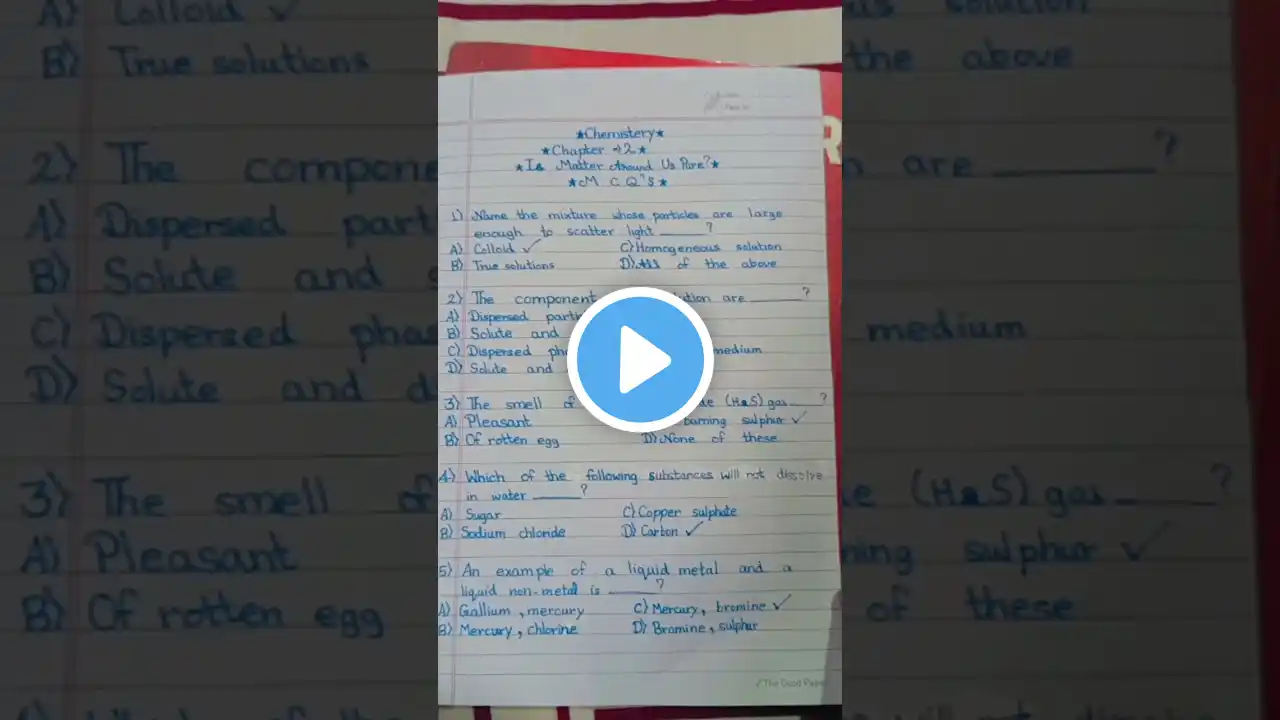 ★Chemistery★
★Chapter →2★
★Is Matter Around Us Pure?★
★M C Q's★
1) Name the mixture whose particles are large
enough to scatter light ____?
A) Colloid ✓
C) Homogeneous solution
B) True solutions
D) All of the above
2) The component are ____?
A) Dispersed
B) Solute and
C) Dispersed medium
D) Solute and
3) The smell of (H2S) gas ____?
A) Pleasant
burning sulphur ✓
B) Of rotten egg
D) None of these
4) Which of the following substances will not dissolve
in water ____?
A) Sugar
C) Copper sulphate
B) Sodium chloride
D) Carbon ✓
5) An example of a liquid metal and a
liquid non-metal is ____?
A) Gallium, mercury
C) Mercury, bromine ✓
B) Mercury, chlorine
D) Bromine, sulphur